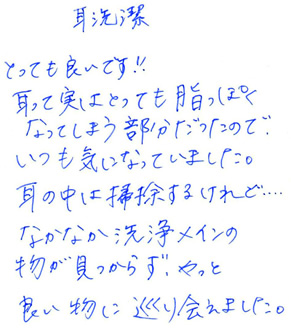 耳洗潔
とっても良いです!!
耳って実はとっても脂っぽく
なってしまう部分だったので
いつも気になっていました。
耳の中は掃除するけれど‥‥
なかなか洗浄メインの
物が見つからず、やっと
良い物に巡り会えました。